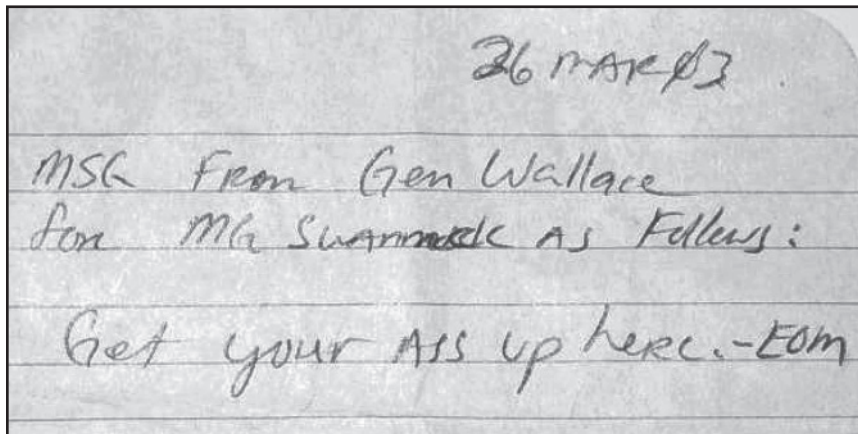 26 MAR Ø3
MSG From Gen Wallace
for MG Swannack As Follows:
Get your Ass up here.-EOM